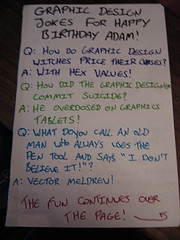 GRAPHIC DESIGN
JOKES FOR HAPPY
BIRTHDAY ADAM!
Q: HOW DO GRAPHIC DESIGN
WITCHES PRICE THEIR CURSES?
A: WITH HEX VALUES!
Q: HOW DID THE GRAPHIC DESIGNER
COMMIT SUICIDE?
A: HE OVERDOSED ON GRAPHICS
TABLETS!
Q: WHAT DO YOU CALL AN OLD
MAN WHO ALWAYS USES THE
PEN TOOL AND SAYS "I DON'T
BELIEVE IT!"?
A: VECTOR MELDREW!
THE FUN CONTINUES OVER
THE PAGE!